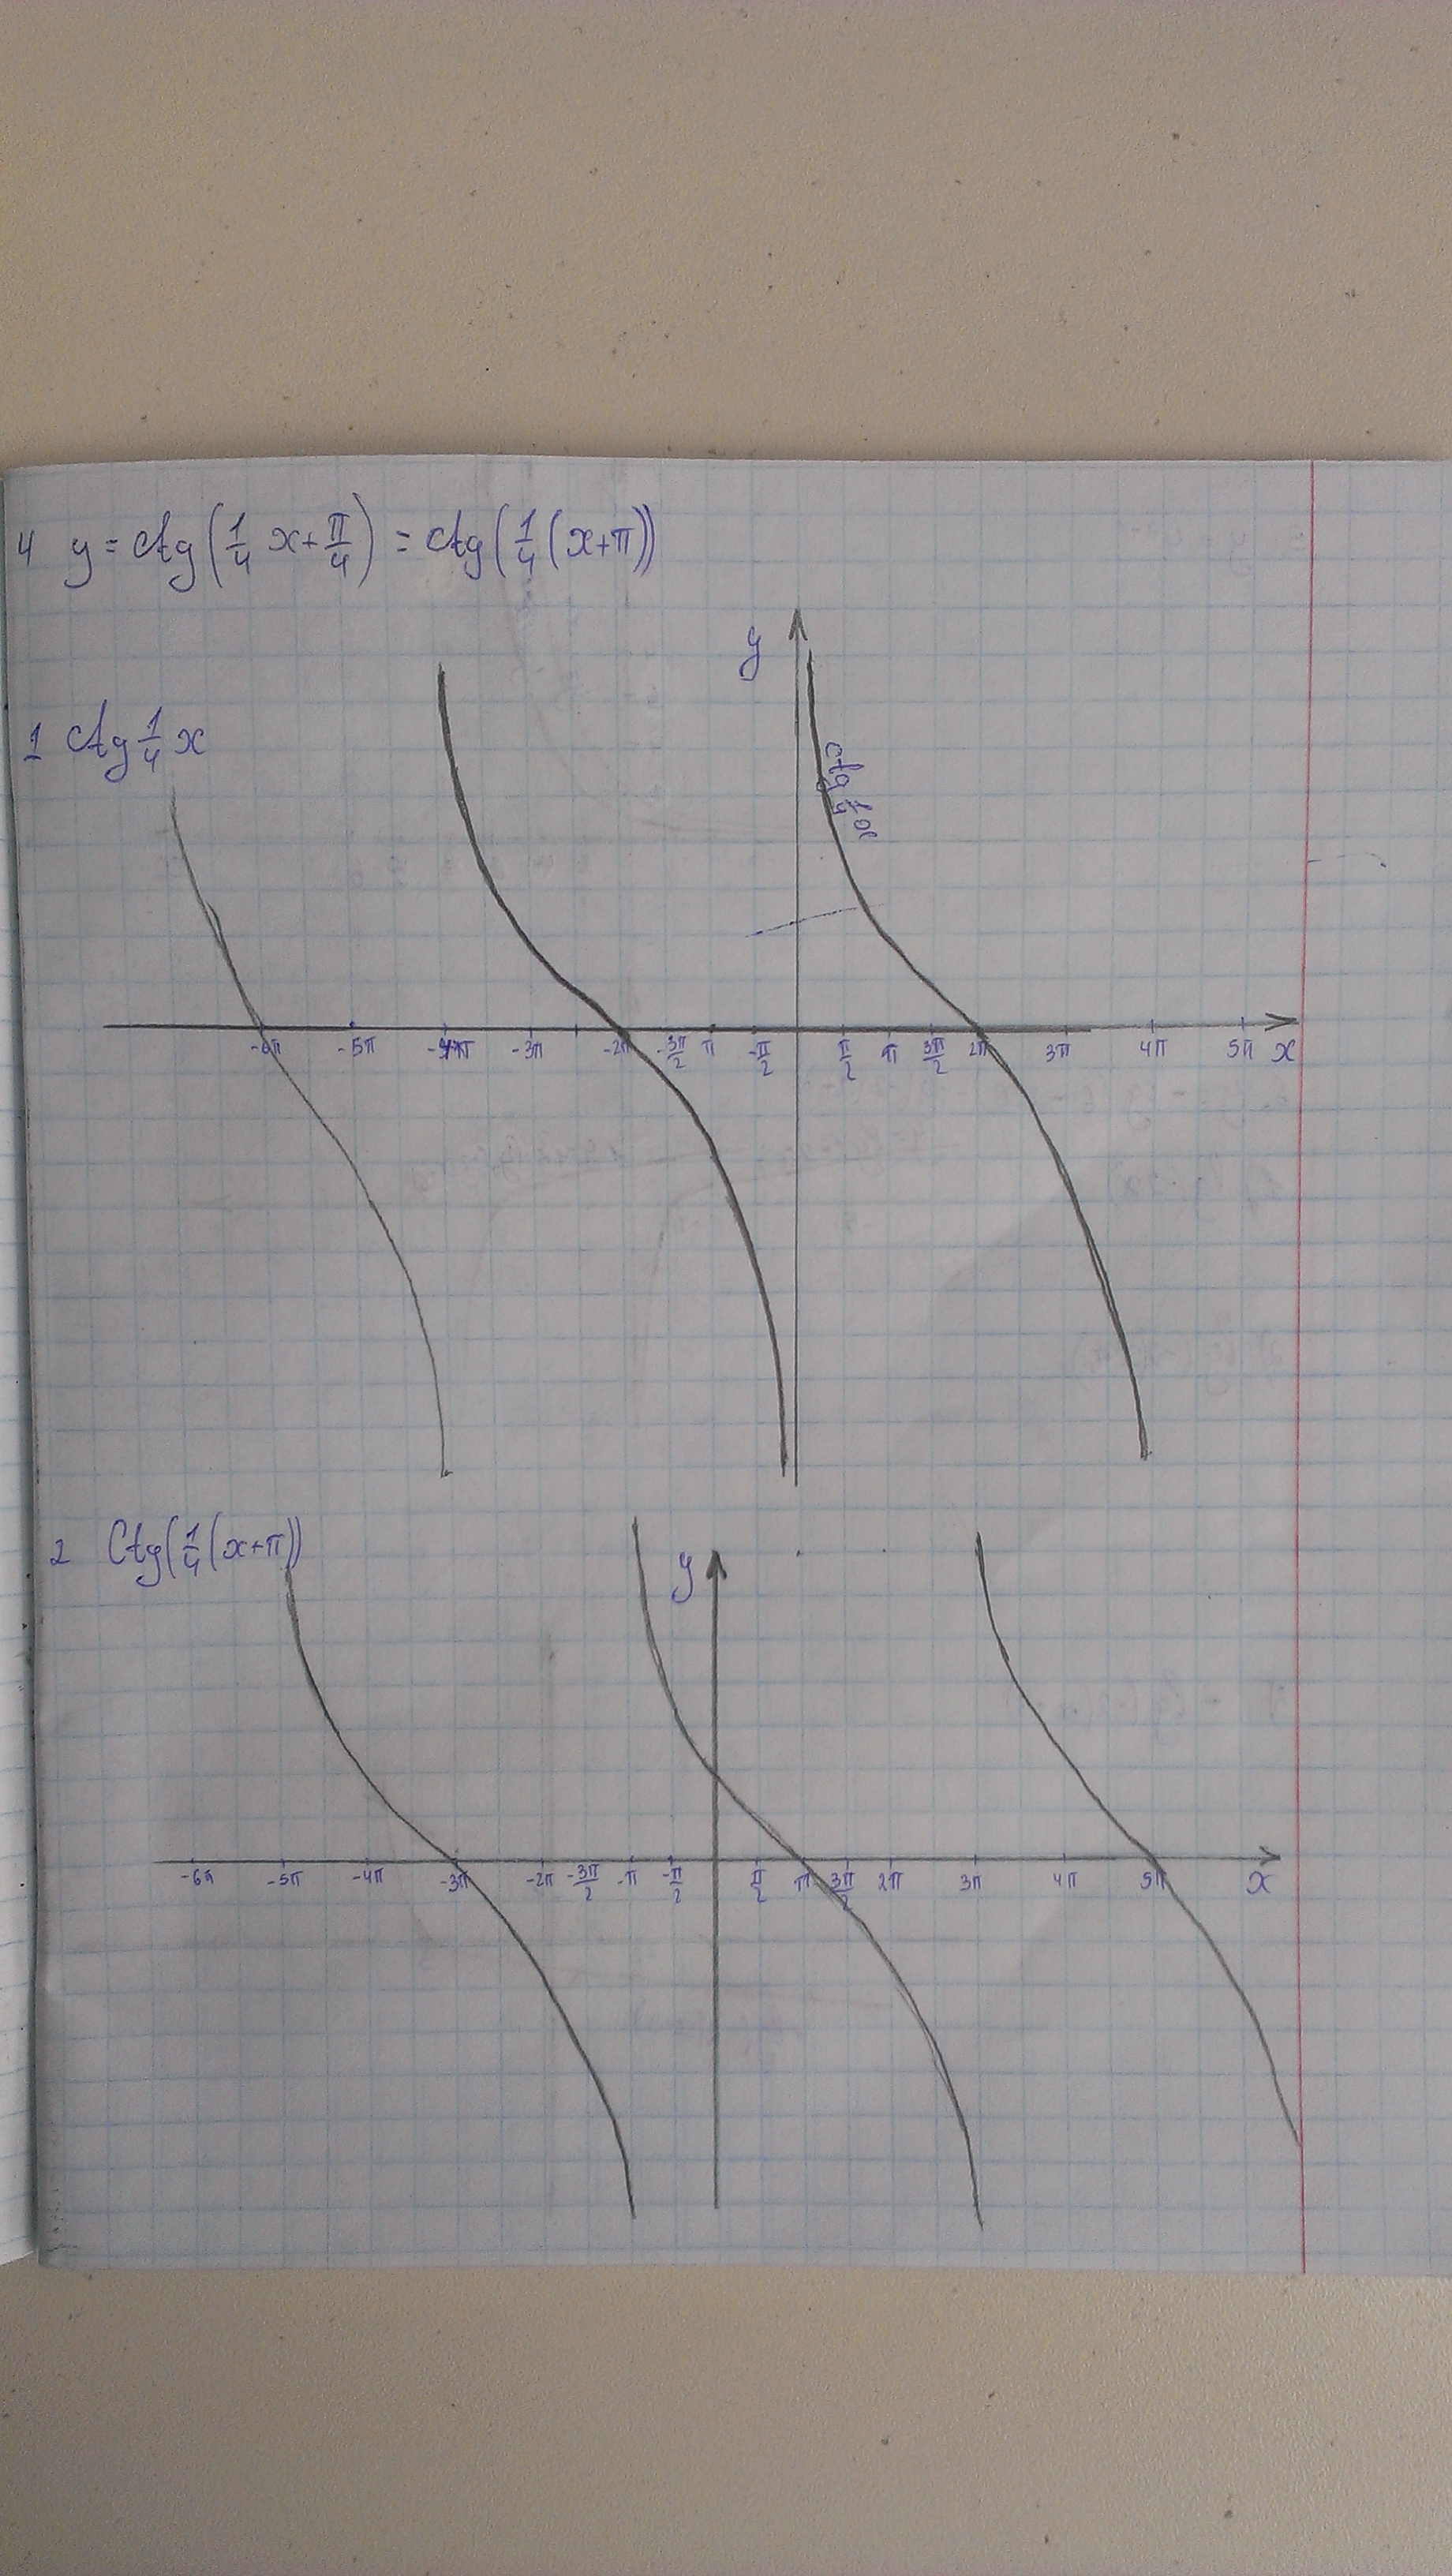 4 y = ctg(1/4 x + π/4) = ctg(1/4(x+π))
y
1 ctg 1/4 x
ctg 1/4 x
-6π -5π -4π -3π -2π -3π/2 π -π/2 π/2 π 3π/2 2π 3π 4π 5π x
2 Ctg(1/4(x+π))
y
-6π -5π -4π -3π -2π -3π/2 -π -π/2 π/2 π 3π/2 2π 3π 4π 5π x